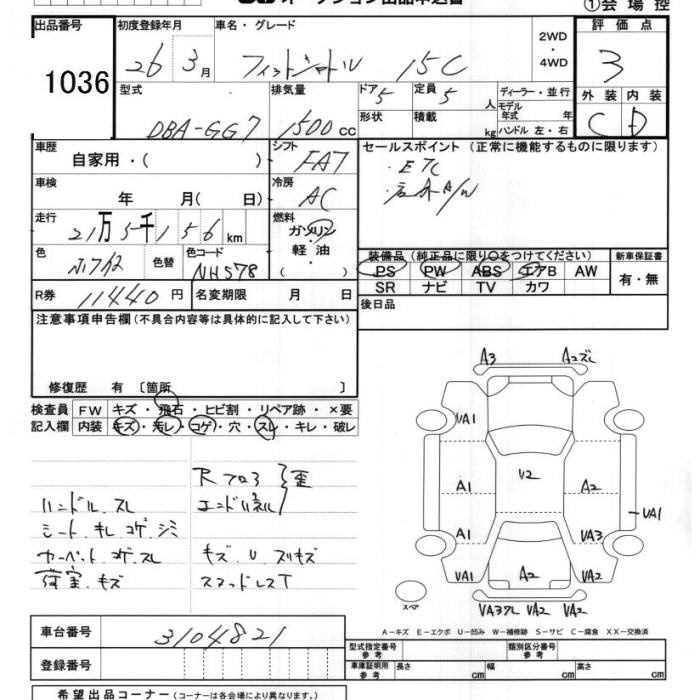 オークション出品申込書
①会場控
出品番号
1036
初度登録年月
26 3月
車名・グレード
フィットシャトル 15C
2WD
・
4WD
評価点
3
型式
DBA-GG7
排気量
1500cc
ドア 5
定員 5人
形状
積載 kg
ディーラー・並行
モデル年式 年
ハンドル 左・右
外装 内装
C D
車歴
自家用・( )
シフト
FAT
セールスポイント (正常に機能するものに限ります)
・ETC
車検
年 月( 日)
冷房
AC
走行
21万5千156km
燃料
ガソリン
軽油
( )
色
色替
色コード
NH578
装備品 (純正品に限り〇をつけてください)
PS PW ABS エアB AW
SR ナビ TV カワ
新車保証書
有・無
R券
11440円
名変期限 月 日
後日品
注意事項申告欄 (不具合内容等は具体的に記入して下さい)
修復歴 有 〔箇所 〕
検査員
記入欄
FW キズ・飛石・ヒビ割・リペア跡・×要
内装 キズ・汚レ・コゲ・穴・スレ・キレ・破レ
ハンドル.スレ
シート.キレ コゲ.シミ
カーペット コゲ.スレ
荷室.キズ
エンドパネル
歪
キズ.U スリキズ
スタッドレスT
A3
A2ズレ
VA1
V2
A1
A2
VA1
A1
VA3
VA1
A2
VA2
VA3ワレ VA2 VA2
スペア
A-キズ E-エクボ U-凹み W-補修跡 S-サビ C-腐食 XX-交換済
車台番号
3104821
登録番号
型式指定番号
参考
類別区分番号
参考
車庫証明用
参考
長さ cm
幅 cm
高さ cm
希望出品コーナー (コーナーは各会場により異なります。)